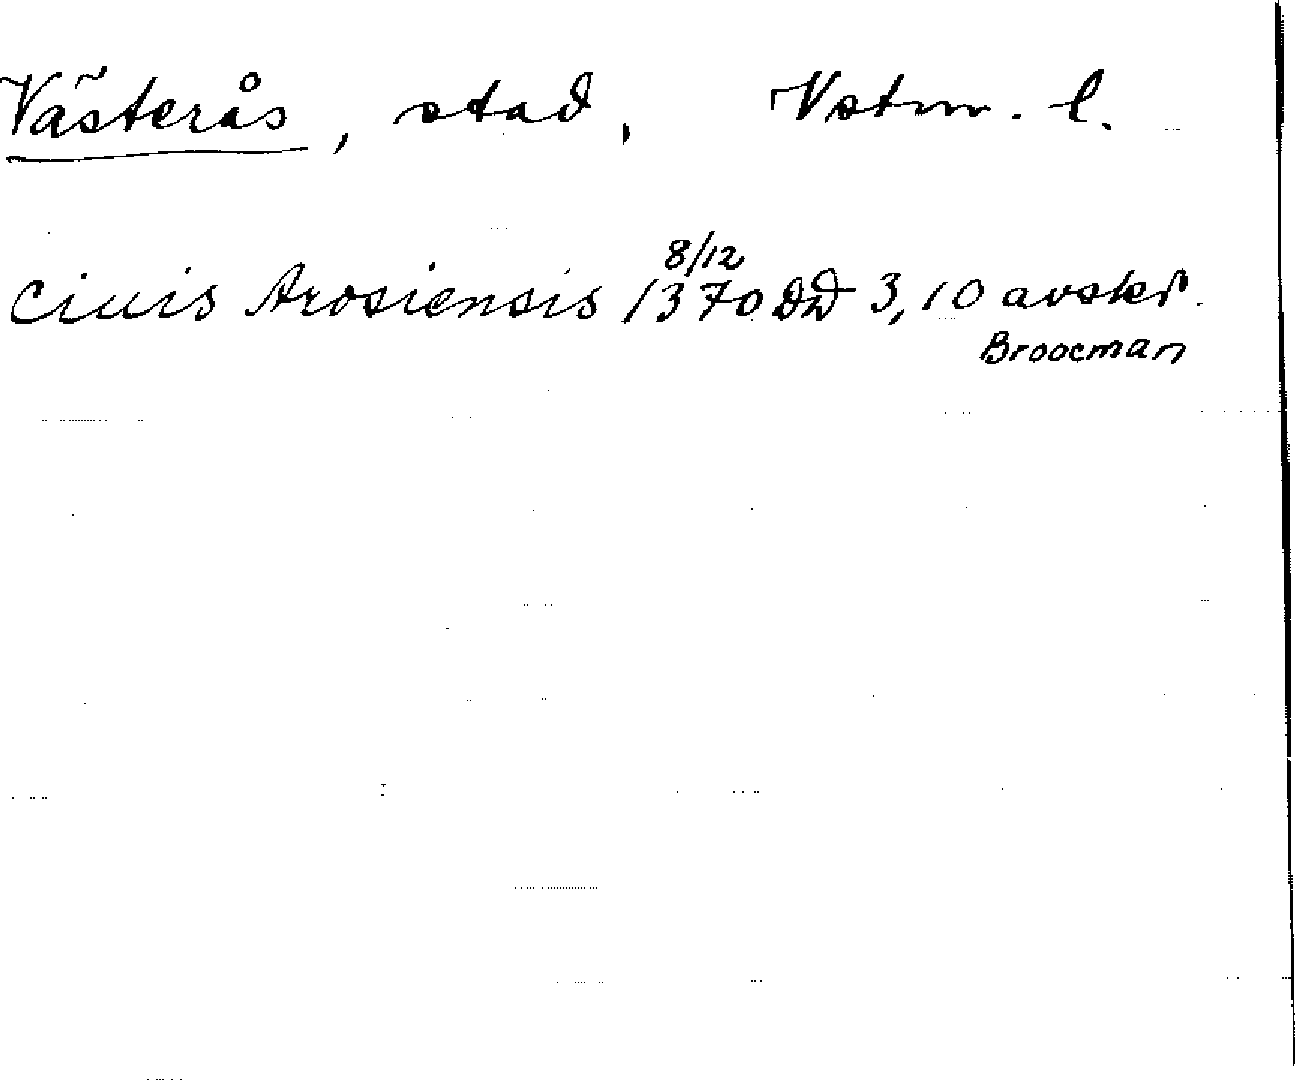 Västerås, stad, Vstm. l.
civis Arosiensis 8/12 1370 DD 3,10 avskr.
Broocman